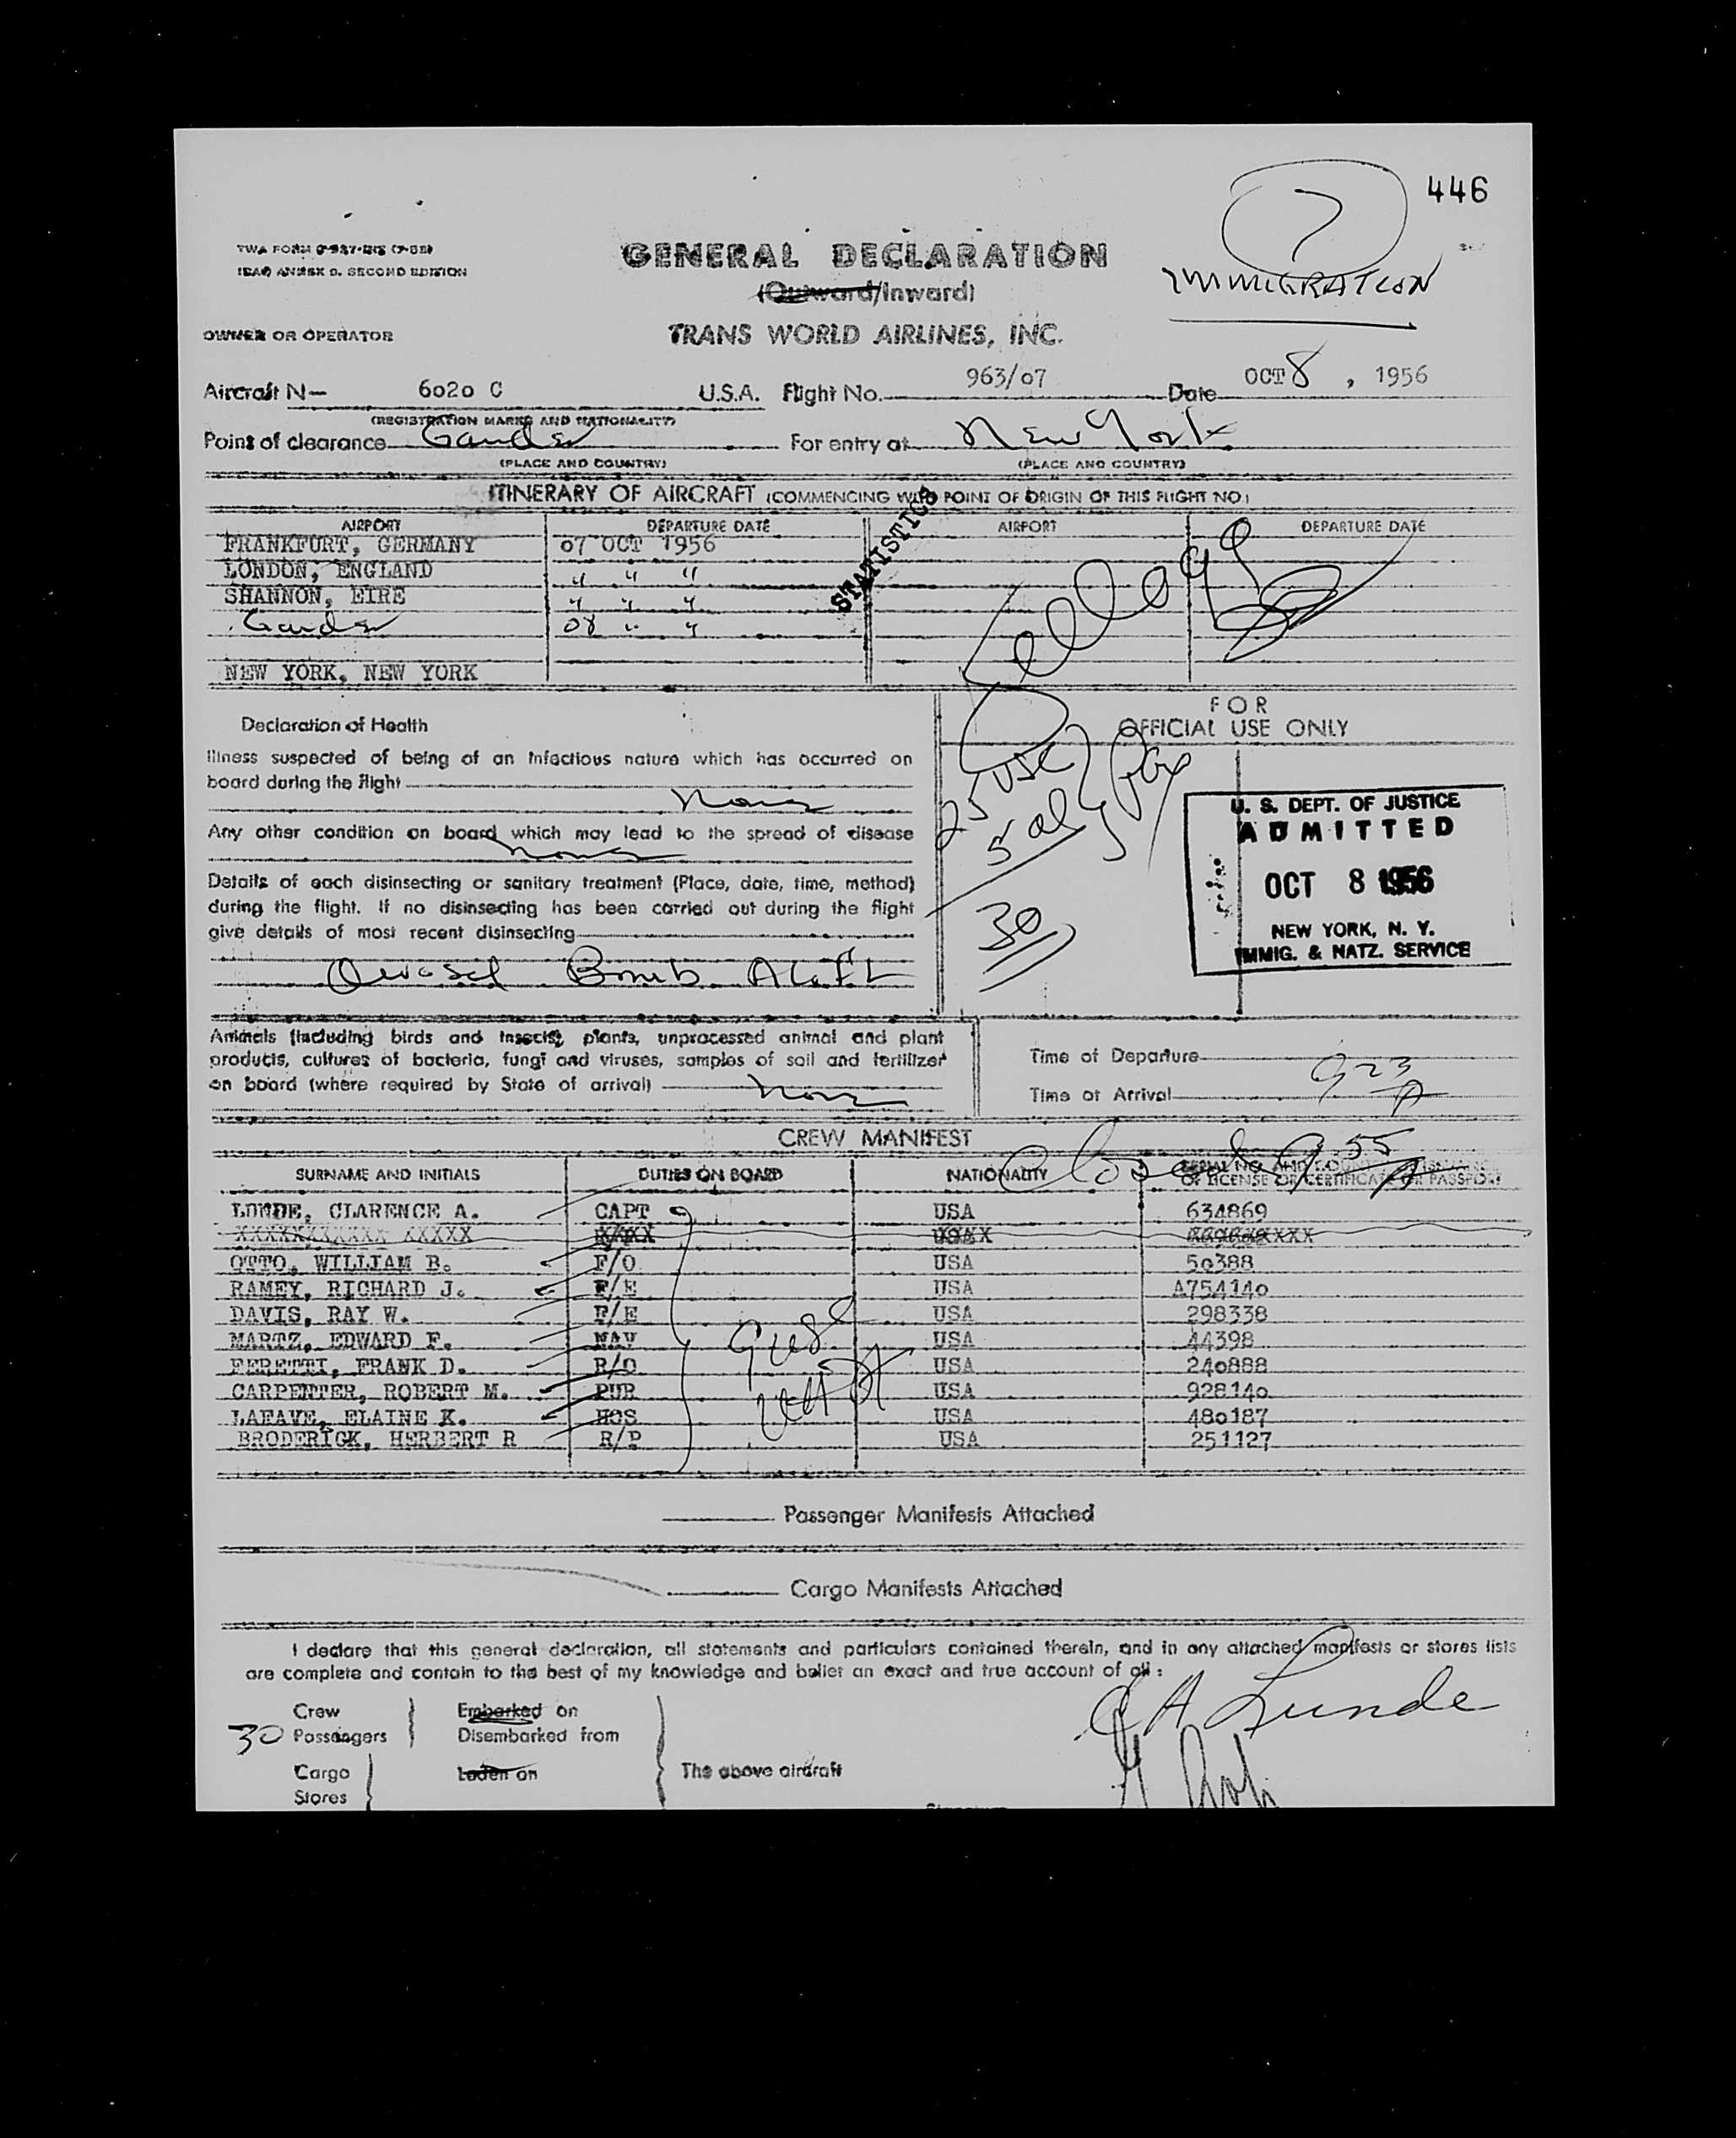 446
7
IMMIGRATION
GENERAL DECLARATION
(Outward/Inward)
ICAO ANNEX 9, SECOND EDITION
OWNER OR OPERATOR
TRANS WORLD AIRLINES, INC.
Aircraft N— 6020 C U.S.A. Flight No. 963/07 Date OCT 8, 1956
(REGISTRATION MARKS AND NATIONALITY)
Point of clearance Gander For entry at New York
(PLACE AND COUNTRY) (PLACE AND COUNTRY)
ITINERARY OF AIRCRAFT (COMMENCING WITH POINT OF ORIGIN OF THIS FLIGHT NO.)
AIRPORT DEPARTURE DATE AIRPORT DEPARTURE DATE
FRANKFURT, GERMANY 07 OCT 1956
LONDON, ENGLAND " " "
SHANNON, EIRE " " "
Gander 08 " "
NEW YORK, NEW YORK
STATISTICS
Declaration of Health
FOR
OFFICIAL USE ONLY
Illness suspected of being of an infectious nature which has occurred on
board during the flight None
Any other condition on board which may lead to the spread of disease
None
Details of each disinsecting or sanitary treatment (Place, date, time, method)
during the flight. If no disinsecting has been carried out during the flight
give details of most recent disinsecting
Bomb
25 USC
5 al
30
U. S. DEPT. OF JUSTICE
ADMITTED
OCT 8 1956
NEW YORK, N. Y.
IMMIG. & NATZ. SERVICE
Animals (including birds and insects), plants, unprocessed animal and plant
products, cultures of bacteria, fungi and viruses, samples of soil and fertilizer
on board (where required by State of arrival) None
Time of Departure
Time of Arrival 923 A
CREW MANIFEST
Closed 955 A
SURNAME AND INITIALS DUTIES ON BOARD NATIONALITY
OF LICENSE OR CERTIFICATE OR PASSPORT
LUNDE, CLARENCE A. CAPT USA 634869
OTTO, WILLIAM B. F/O USA 50388
RAMEY, RICHARD J. F/E USA A754140
DAVIS, RAY W. F/E USA 298338
MARTZ, EDWARD F. NAV USA 44398
FERETTI, FRANK D. R/O USA 240888
CARPENTER, ROBERT M. PUR USA 928140
LAFAVE, ELAINE K. HOS USA 480187
BRODERICK, HERBERT R R/P USA 251127
9 USC
Passenger Manifests Attached
Cargo Manifests Attached
I declare that this general declaration, all statements and particulars contained therein, and in any attached manifests or stores lists
are complete and contain to the best of my knowledge and belief an exact and true account of all:
C A Lunde
Crew Embarked on
30 Passengers Disembarked from
Cargo Laden on The above aircraft
Stores